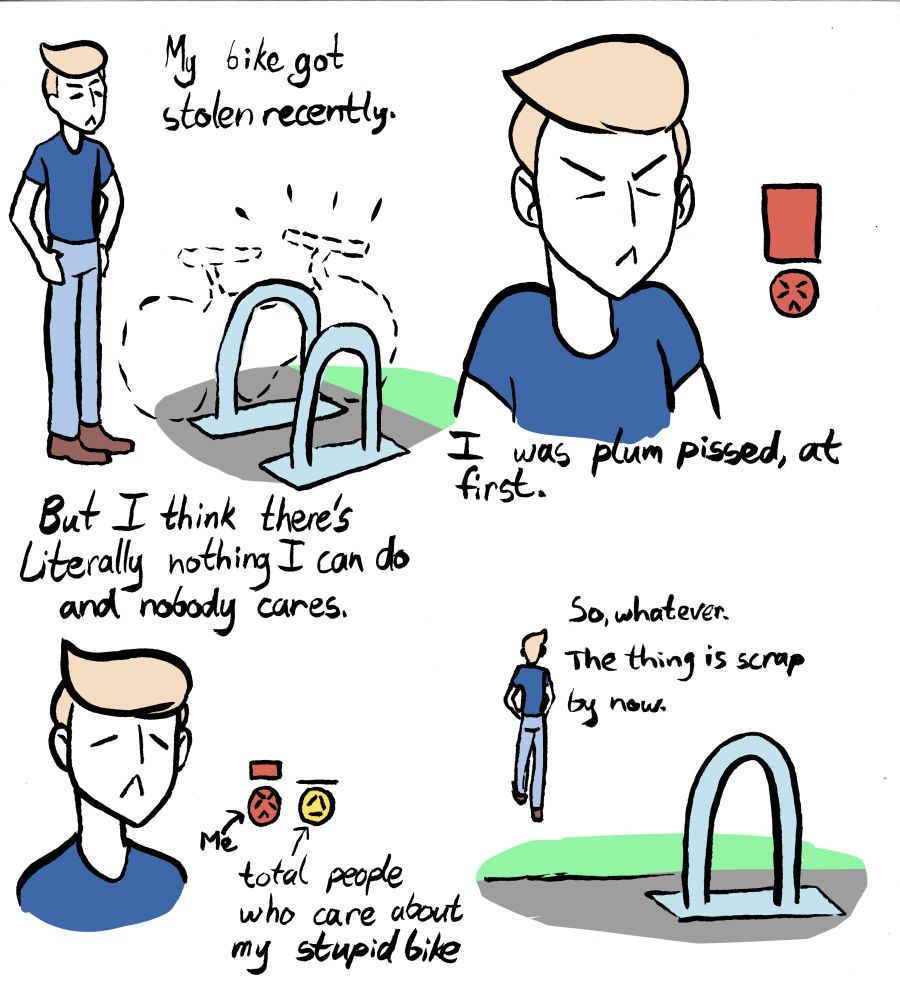 My bike got
stolen recently.
I was plum pissed, at
first.
But I think there's
Literally nothing I can do
and nobody cares.
Me
total people
who care about
my stupid bike
So, whatever.
The thing is scrap
by now.